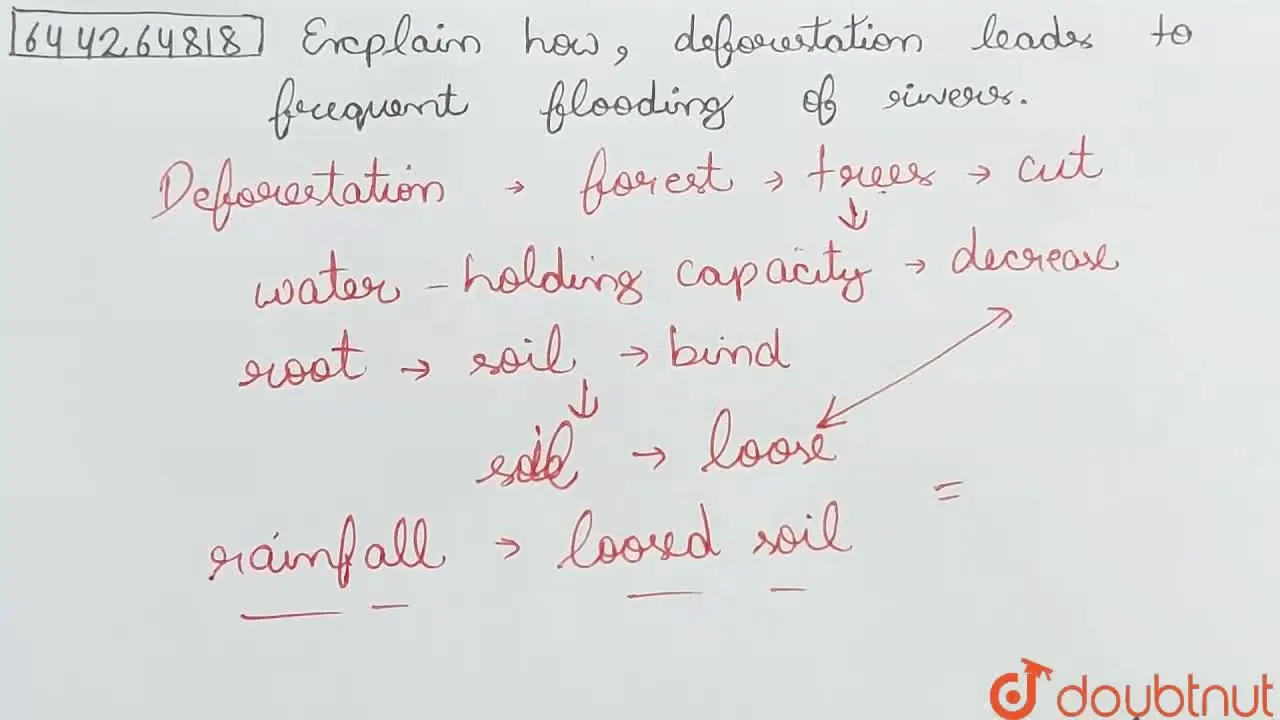 644264818 Explain how, deforestation leads to
frequent flooding of rivers.
Deforestation → forest → trees → cut
↓
water - holding capacity → decrease
root → soil → bind
↓
soil → loose
rainfall → loosed soil =
doubtnut